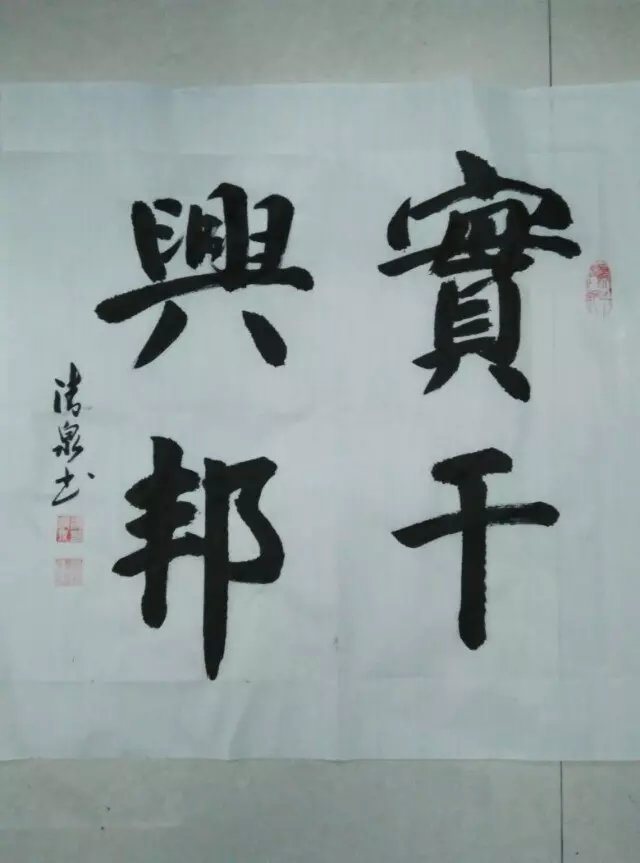 實干
興邦
清泉书